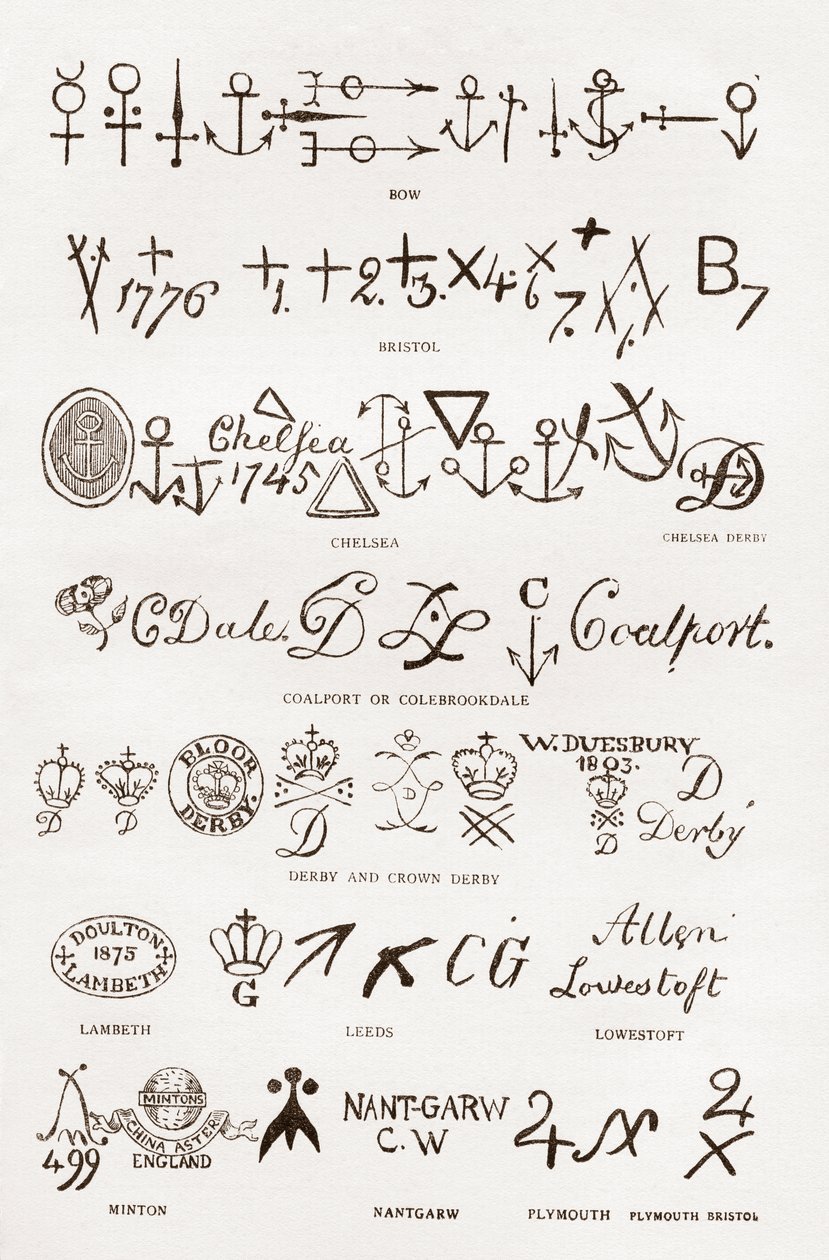 BOW
1776 1. 2. 3. 4. 6 7. 1. B7
BRISTOL
Chelsea
1745
CHELSEA
CHELSEA DERBY
CDale. CD C Coalport.
COALPORT OR COLEBROOKDALE
D D
BLOOR
DERBY.
D
D
W. DUESBURY
1803.
D
D
Derby
DERBY AND CROWN DERBY
DOULTON
1875
LAMBETH
G
C G
Allen
Lowestoft
LAMBETH
LEEDS
LOWESTOFT
499
MINTONS
CHINA ASTER
ENGLAND
NANT-GARW
C.W
MINTON
NANTGARW
PLYMOUTH
PLYMOUTH BRISTOL